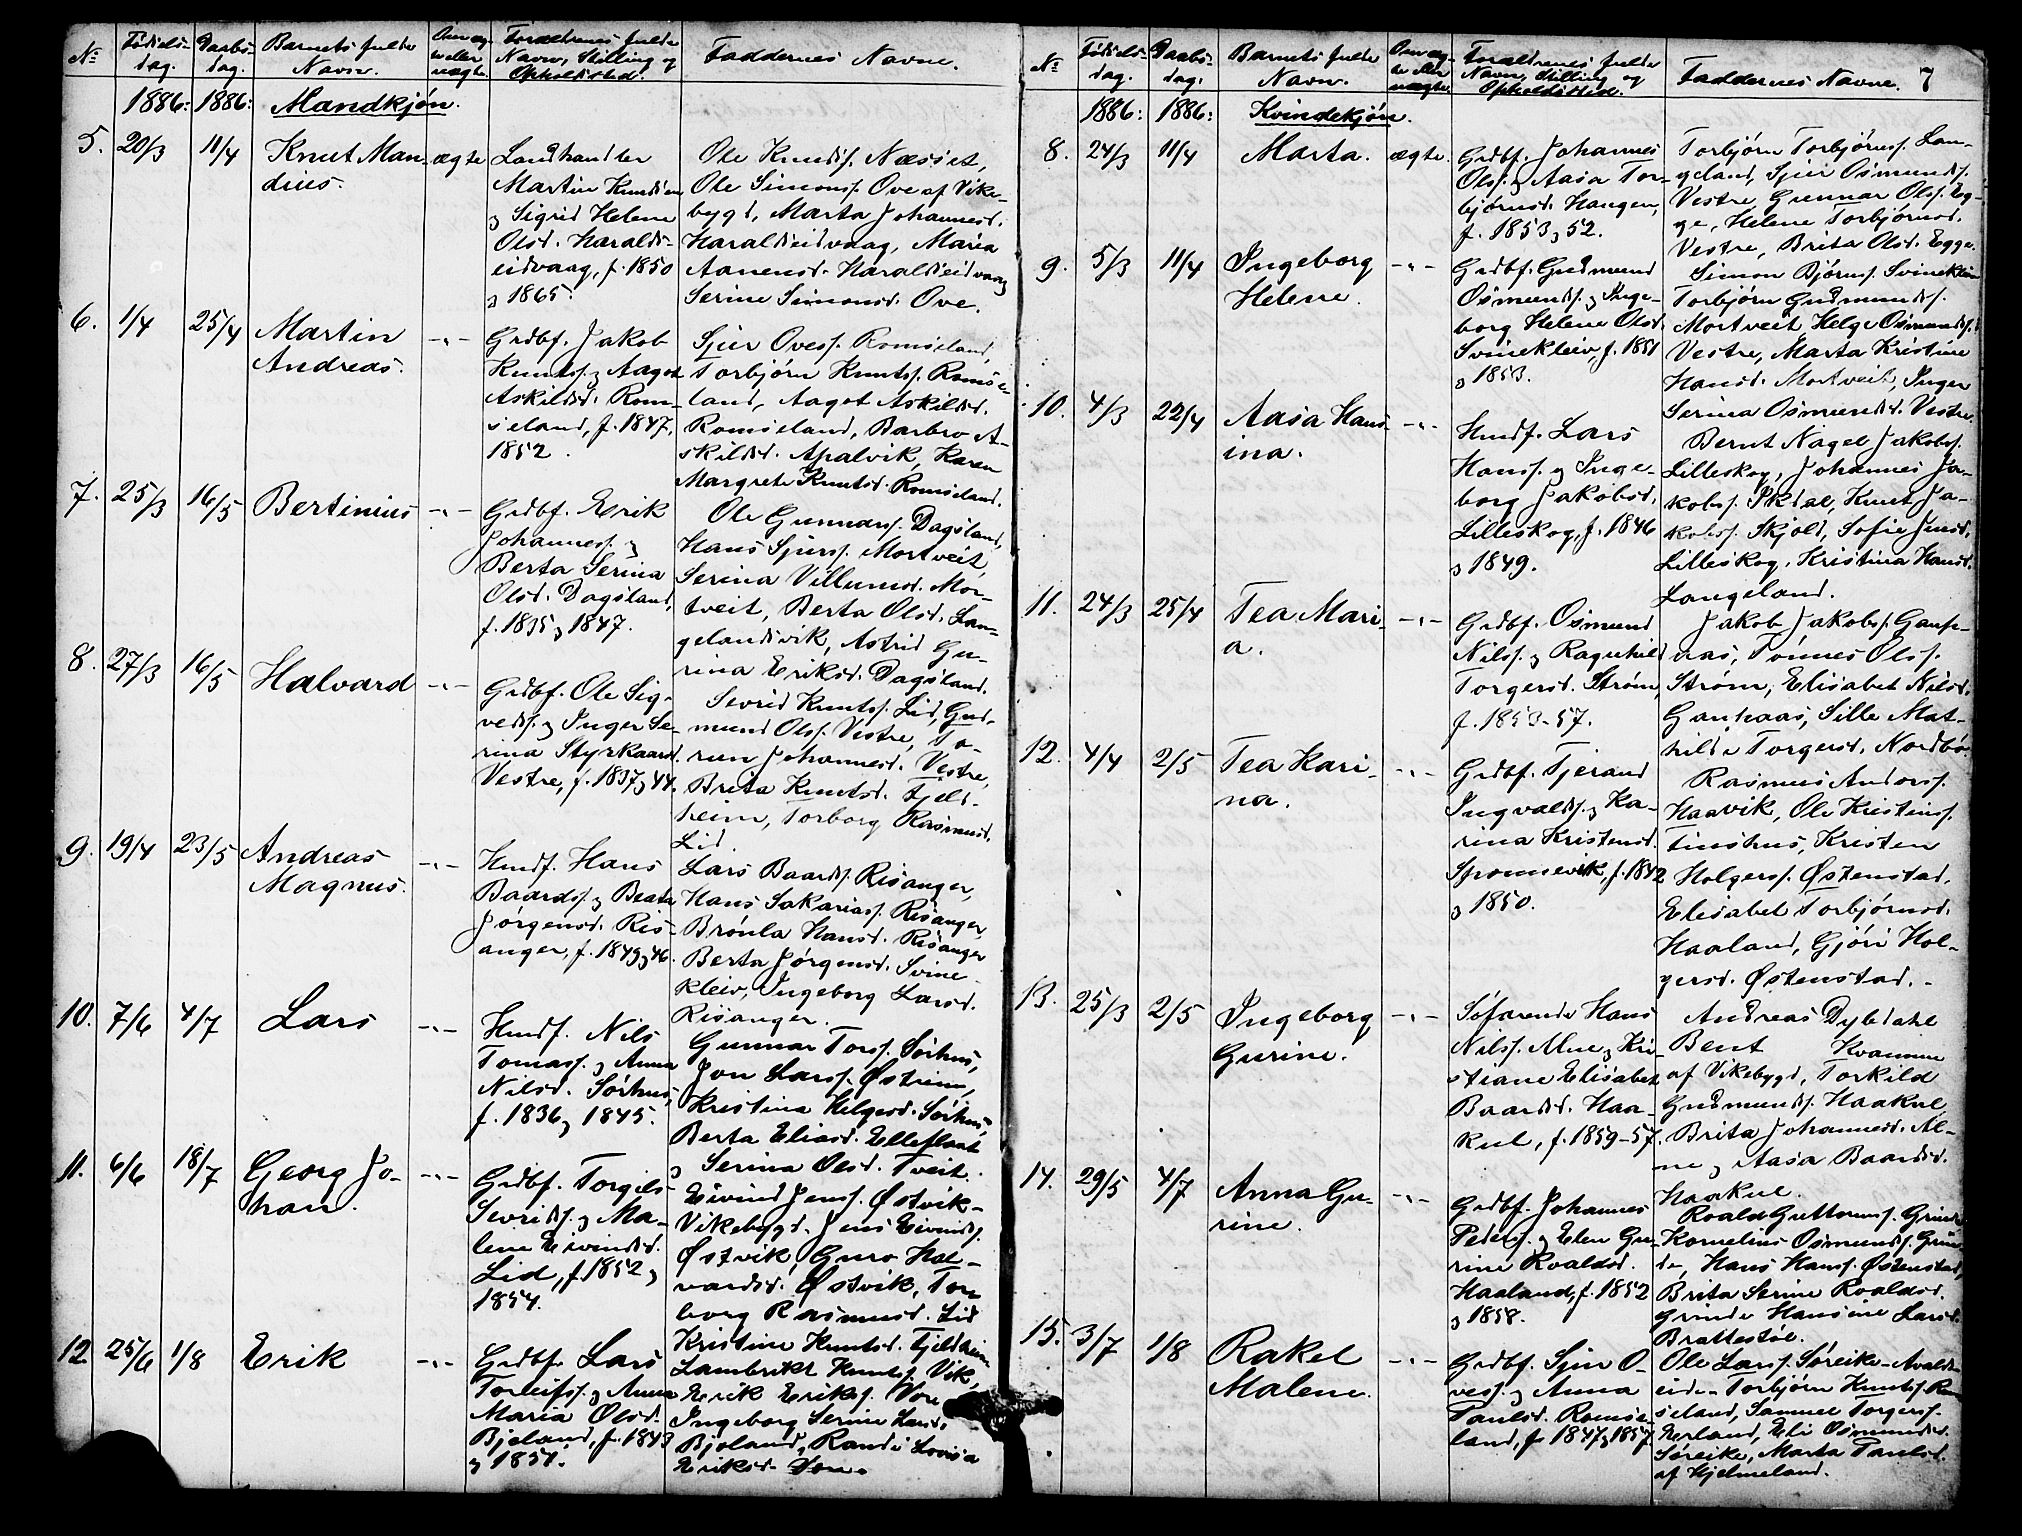 No
Fødsels-
dag.
Daabs-
dag.
Barnets fulde
Navn.
Om æg-
te eller
uægte.
Forældrenes fulde
Navn, Stilling og
Opholdssted.
Faddernes Navne.
1886: 1886: Mandkjøn.
5. 20/3 11/4 Knut Man-
dius.
ægte
Landhandler
Martin Knudsen
og Sigrid Helene
Olsd. Haralds-
eidvaag, f. 1850
og 1865.
Ole Knuds. Næsset,
Ole Simons. Ove af Vike-
bygd, Marta Johannesd.
Haraldseidvaag, Maria
Aanensd. Haraldseidvaag
Serine Simonsd. Ove.
6. 1/4 25/4 Martin
Andreas.
-"-
Grdbf. Jakob
Knuts. og Aagot
Askildsd. Rom-
seland, f. 1847,
1852.
Sjur Oves. Romseland,
Torbjørn Knuts. Romse-
land, Aagot Askildsd.
Romseland, Barbro A-
skildsd. Apalvik, Karen
Margrete Knutsd. Romseland.
7. 25/3 16/5 Bertinius
-"-
Grdbf. Erik
Johannes. og
Berta Serina
Olsd. Dagsland,
f. 1835 og 1847.
Ole Gunnars. Dagsland,
Hans Sjurs. Mortveit,
Serina Villumsd. Mor-
tveit, Berta Olsd. Lan-
gelandsvik, Astrid Gu-
rina Eriksd. Dagsland.
8. 27/3 16/5 Halvard
-"-
Grdbf. Ole Sig-
veds. og Inger Se-
rina Styrkaarsd.
Vestre, f. 1837 og 44.
Sevrid Knuts. Lid, Gud-
mund Ols. Vestre, To-
rine Johannesd. Vestre,
Brita Knutsd. Fjeld-
heim, Torborg Rasmusd.
Lid.
9. 19/4 23/5 Andreas
Magnus.
-"-
Husmf. Hans
Baards. og Beata
Jørgensd. Ris-
anger, f. 1849 og 46.
Lars Baards. Risanger,
Hans Sakarias. Risanger,
Brønla Hansd. Risanger
Berta Jørgensd. Svine-
kleiv, Ingeborg Larsd.
Risanger.
10. 7/6 4/7 Lars
-"-
Husmf. Nils
Tomass. og Anna
Nilsd. Sørhus,
f. 1836 og 1845.
Gunnar Tors. Sørhus,
Jon Lars. Østrem,
Kristina Helgesd. Sørhus,
Berta Eliasd. Elleflaat
og Serina Olsd. Tveit.
11. 6/6 18/7 Georg Jo-
han.
-"-
Grdbf. Torgils
Sevrids. og Ma-
lene Eivindsd.
Lid, f. 1852 og
1854.
Eivind Jens. Østvik-
Vikebygd. Jens Eivinds.
Østvik, Guro Hal-
vardsd. Østvik, Tor-
borg Rasmusd. Lid
12. 25/6 1/8 Erik
-"-
Grdbf. Lars
Torleifs. og Anna
Maria Olsd.
Bjoland, f. 1843
og 1851.
Kristine Knutsd. Fjeldheim
Lambrikt Knuts. Vik,
Erik Eriks. Vore
Ingeborg Serine Larsd.
Bjoland, Randi Lovisa
Eriksd. Vore.
No
Fødsels-
dag.
Daabs-
dag.
Barnets fulde
Navn.
Om æg-
te eller
uægte.
Forældrenes fulde
Navn, Stilling og
Opholdssted.
Faddernes Navne. 7
1886: 1886: Kvindekjøn.
8. 24/3 11/4 Marta.
ægte.
Grdbf. Johannes
Ols. og Aasa Tor-
bjørnsd. Haugen,
f. 1853 og 52.
Torbjørn Torbjørns. Lan-
geland, Sjur Osmunds.
Vestre, Gunnar Ols. Eg-
ge, Helene Torbjørnsd.
Vestre, Brita Olsd. Egge.
9. 5/3 11/4 Ingeborg
Helene.
-"-
Grdbf. Gudmund
Osmunds. og Inge-
borg Helene Olsd.
Svinekleiv, f. 1851
og 1853.
Simon Bjørns. Svinekleiv
Torbjørn Gudmunds.
Mortveit Helge Osmunds.
Vestre, Marta Kristine
Hansd. Mortveit, Inger
Serina Osmundsd. Vestre.
10. 4/3 22/4 Aasa Hans-
ina.
-"-
Husmf. Lars
Hans. og Inge-
borg Jakobsd.
Lilleskog, f. 1846
og 1849.
Bernt Nagel Jakobs.
Lilleskog, Johannes Ja-
kobs. Skjol, Knut Ja-
kobs. Skjold, Sofie Jensd.
Lilleskog, Kristina Hansd.
Langeland.
11. 24/3 25/4 Tea Mari-
a.
-"-
Grdbf. Osmund
Nils. og Ragnhild
Torgersd. Strøm,
f. 1853-57.
Jakob Jakobs. Gaup-
aas, Tønnes Ols.
Strøm, Elisabet Nilsd.
Gaupaas, Sille Mat-
hilde Torgersd. Nordbø.
12. 4/4 2/5 Tea Kari-
na.
-"-
Grdbf. Tjerand
Ingvalds. og Ka-
rina Kristensd.
Sponnevik, f. 1842
og 1850.
Rasmus Anders.
Haavik, Ole Kristens.
Tinshus, Kristen
Holgers. Østenstad,
Elisabet Torbjørnsd.
Haaland, Gjøri Hol-
gersd. Østenstad.
13. 25/3 2/5 Ingeborg
Gurine.
-"-
Søfarende Hans
Nils. Alne og Kri-
stiane Elisabet
Baardsd. Haa-
kul, f. 1859-57.
Andreas Dybdahl
Bent Kvamme
af Vikebygd, Torkild
Gudmunds. Haakul,
Brita Johannesd. Al-
ne og Aasa Baardsd.
Haakul.
14. 29/5 4/7 Anna Gu-
rine.
-"-
Grdbf. Johannes
Peders. og Elen Gu-
rine Roaldsd.
Haaland, f. 1852
og 1858.
Roald Guttorms. Grinde
Kornelius Osmunds. Grin-
de, Hans Hans. Østenstad,
Brita Serine Roaldsd.
Grinde Hansine Larsd.
Brattestøl.
15. 3/7 1/8 Rakel
Malene.
-"-
Grdbf. Sjur O-
ves. og Anna
Paulsd. Romse-
land, f. 1847 og 1857
Ole Lars. Søreike-Avalds-
eid- Torbjørn Knuts. Rom-
seland, Samuel Torgers.
Erland, Eli Osmundsd.
Søreike, Marta Paulsd.
af Hjelmeland.